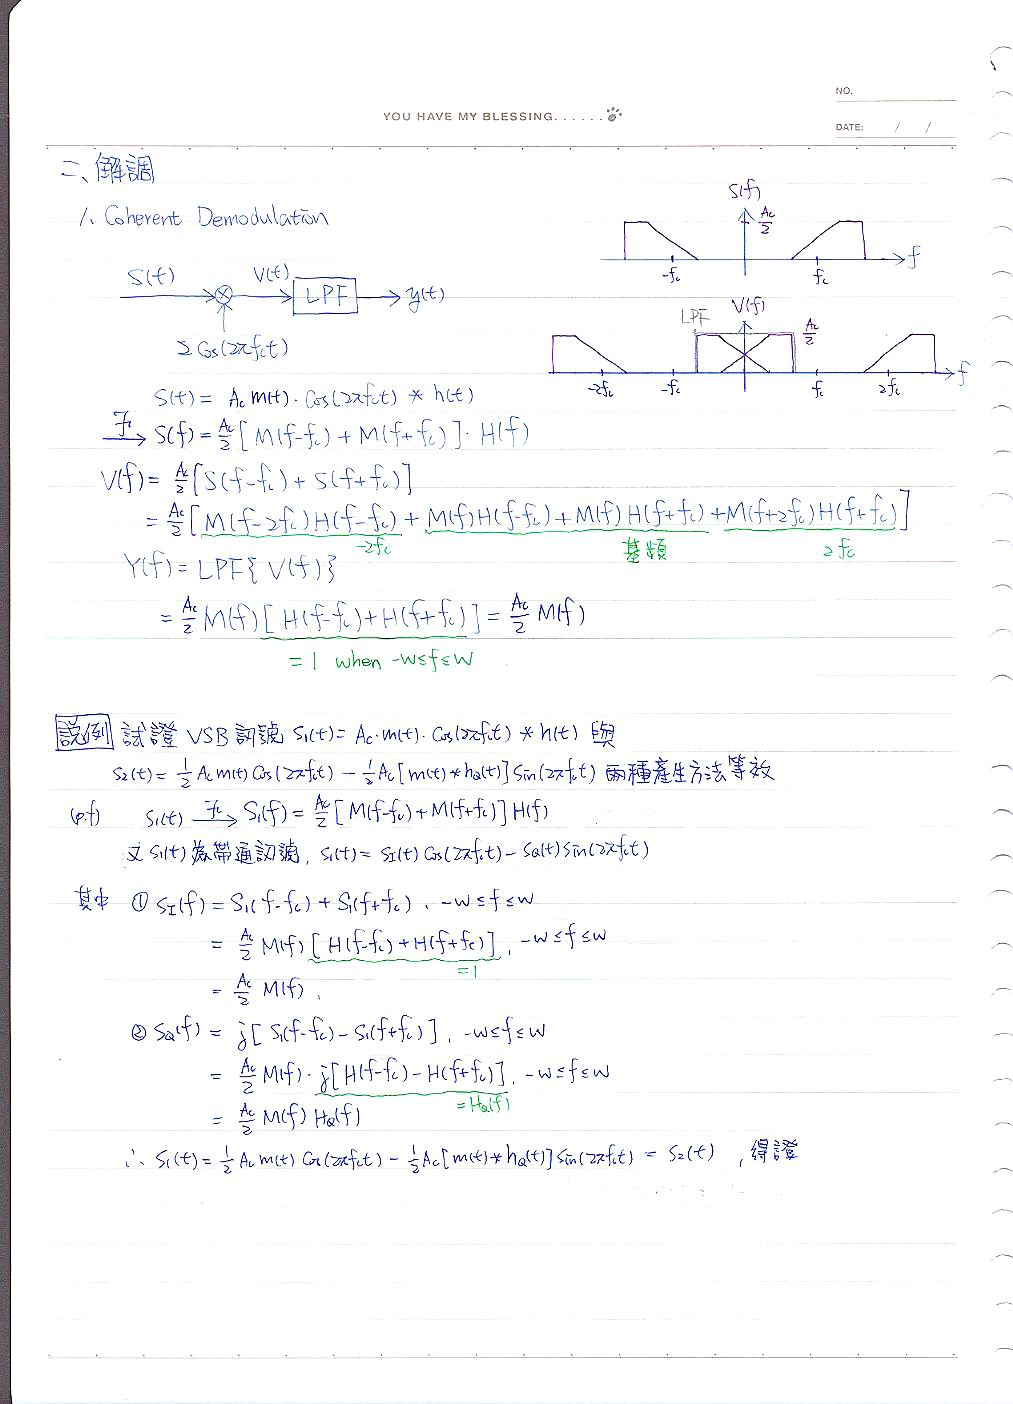 NO.
YOU HAVE MY BLESSING......
DATE: / /
二、解調
1. Coherent Demodulation
S(t) V(t) LPF y(t)
2Cos(2πfct)
S(f)
Ac/2
-fc fc f
V(f)
LPF
Ac/2
-2fc -fc fc 2fc f
S(t) = Ac m(t)·Cos(2πfct) * h(t)
S(f) = Ac/2 [M(f-fc) + M(f+fc)]·H(f)
V(f) = Ac/2 [S(f-fc) + S(f+fc)]
= Ac/2 [M(f-2fc)H(f-fc) + M(f)H(f-fc) + M(f)H(f+fc) + M(f+2fc)H(f+fc)]
-2fc 基頻 2fc
Y(f) = LPF{V(f)}
= Ac/2 M(f)[H(f-fc)+H(f+fc)] = Ac/2 M(f)
= 1 when -w≤f≤w
說例 試證 VSB 訊號 S1(t) = Ac·m(t)·Cos(2πfct) * h(t) 與
S2(t) = 1/2 Ac m(t) Cos(2πfct) - 1/2 Ac[m(t)*hQ(t)] Sin(2πfct) 兩種產生方法等效
(pf) S1(t) → S1(f) = Ac/2 [M(f-fc) + M(f+fc)] H(f)
又 S1(t) 為帶通訊號, S1(t) = SI(t) Cos(2πfct) - SQ(t) Sin(2πfct)
其中 ① SI(f) = S1(f-fc) + S1(f+fc), -w≤f≤w
= Ac/2 M(f) [H(f-fc)+H(f+fc)], -w≤f≤w
=1
= Ac/2 M(f),
② SQ(f) = j[S1(f-fc) - S1(f+fc)], -w≤f≤w
= Ac/2 M(f)·j[H(f-fc) - H(f+fc)], -w≤f≤w
=HQ(f)
= Ac/2 M(f) HQ(f)
∴ S1(t) = 1/2 Ac m(t) Cos(2πfct) - 1/2 Ac[m(t)*hQ(t)] Sin(2πfct) = S2(t), 得證